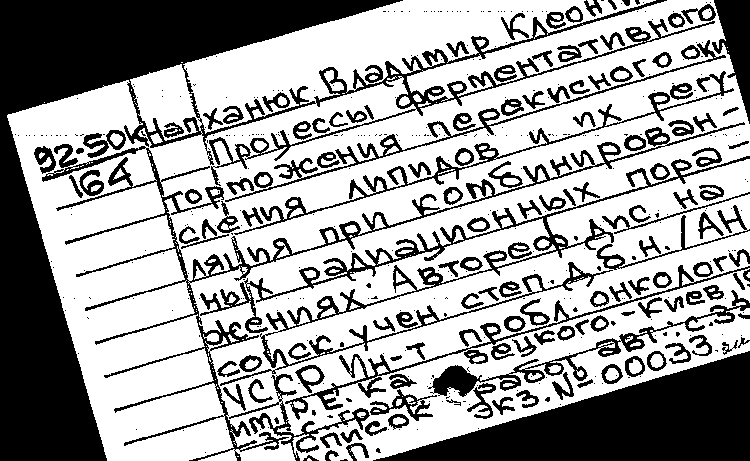 Налханюк, Владимир Клеонти
92-50К
164
Процессы ферментативного
торможения перекисного оки
сления липидов и их регу-
ляция при комбинирован-
ных радиационных пора-
жениях: Автореф. дис. на
соиск. учен. степ. д.б.н. / АН
УССР, Ин-т пробл. онкологи
им. Р.Е. Ка вецкого. - Киев, 19
- 35 с.: граф.
Список работ авт.: с. 33
Экз. № 00033.